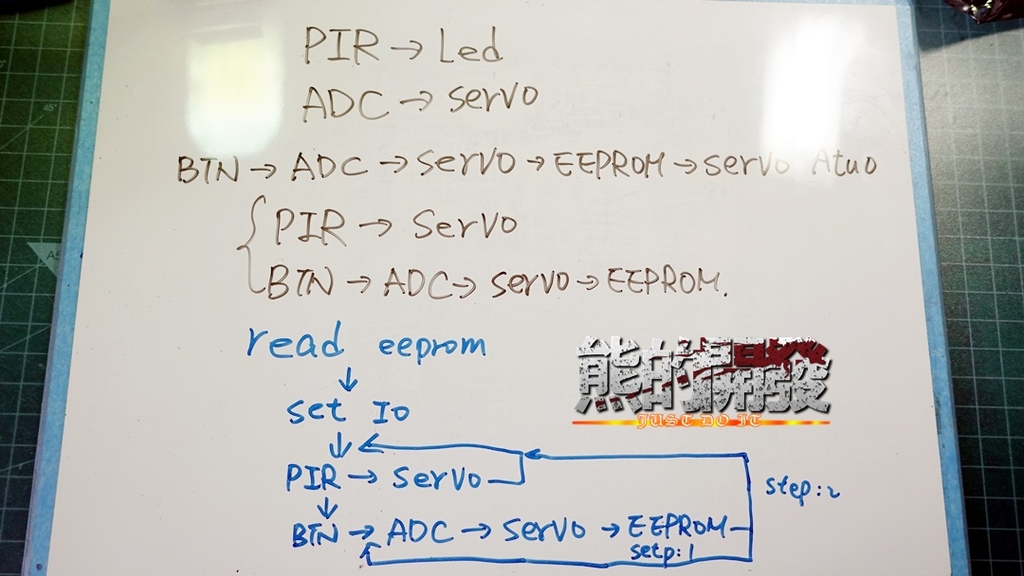 PIR → Led
ADC → servo
BTN → ADC → servo → EEPROM → servo Atuo
{ PIR → Servo
BTN → ADC → servo → EEPROM.
read eeprom
↓
set Io
↓
PIR → servo
↓
BTN → ADC → servo → EEPROM
setp:1
step:2
熊的開發
JUST DO IT